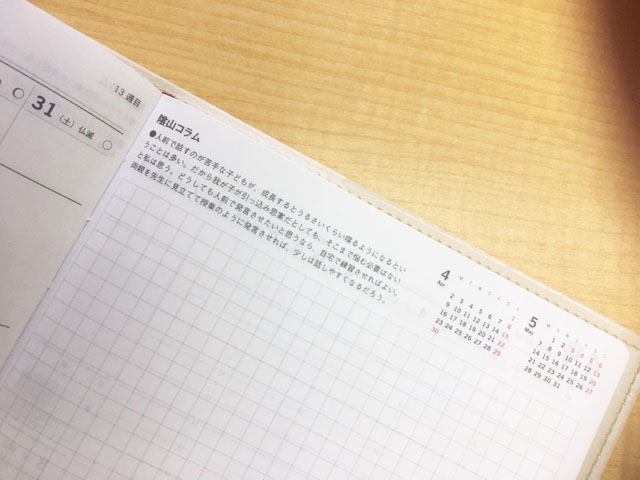 13週目
31 (土) 仏滅
陰山コラム
●人前で話すのが苦手な子どもが、成長するとうるさいくらい喋るようになるとい
うことは多い。だから我が子が引っ込み思案だとしても、そこまで悩む必要はない
と私は思う。どうしても人前で発言させたいと思うなら、自宅で練習させればよい。
両親を先生に見立てて授業のように発言させれば、少しは話しやすくなるだろう。
4
Apr
M T W T F S S
1
2 3 4 5 6 7 8
9 10 11 12 13 14 15
16 17 18 19 20 21 22
23 24 25 26 27 28 29
30
5
May
M T W T F S S
1 2 3 4 5 6
7 8 9 10 11 12 13
14 15 16 17 18 19 20
21 22 23 24 25 26 27
28 29 30 31